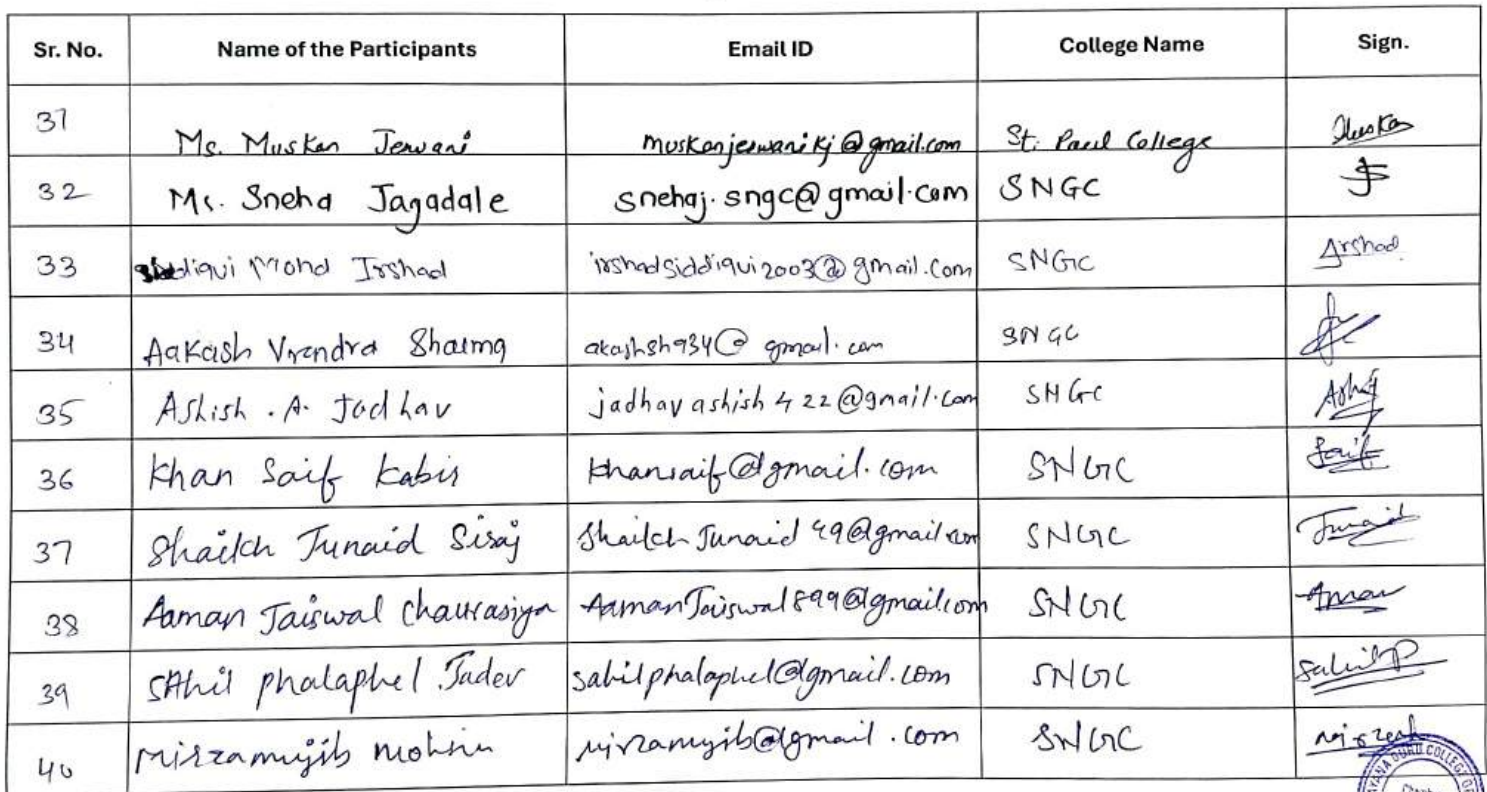 Sr. No. Name of the Participants Email ID College Name Sign.
31 Ms. Muskan Jewani muskanjeswanikj@gmail.com St. Paul College Muskan
32 Ms. Sneha Jagadale snehaj.sngc@gmail.com SNGC
33 Siddiqui Mohd Irshad irshadsiddiqui2003@gmail.com SNGC Irshad
34 Aakash Virendra Sharma akashsh934@gmail.com SNGC
35 Ashish . A. Jadhav jadhavashish422@gmail.com SNGC
36 Khan Saif Kabir khansaif@gmail.com SNGC Saif
37 Shaikh Junaid Siraj ShaikhJunaid49@gmail.com SNGC Junaid
38 Aaman Jaiswal Chaurasiya AamanJaiswal899@gmail.com SNGC Aman
39 SAhil phalaphel Jadev sahilphalaphel@gmail.com SNGC Sahil P
40 Mirzamujib mohsin mirzamujib@gmail.com SNGC
GURU COLLEGE OF